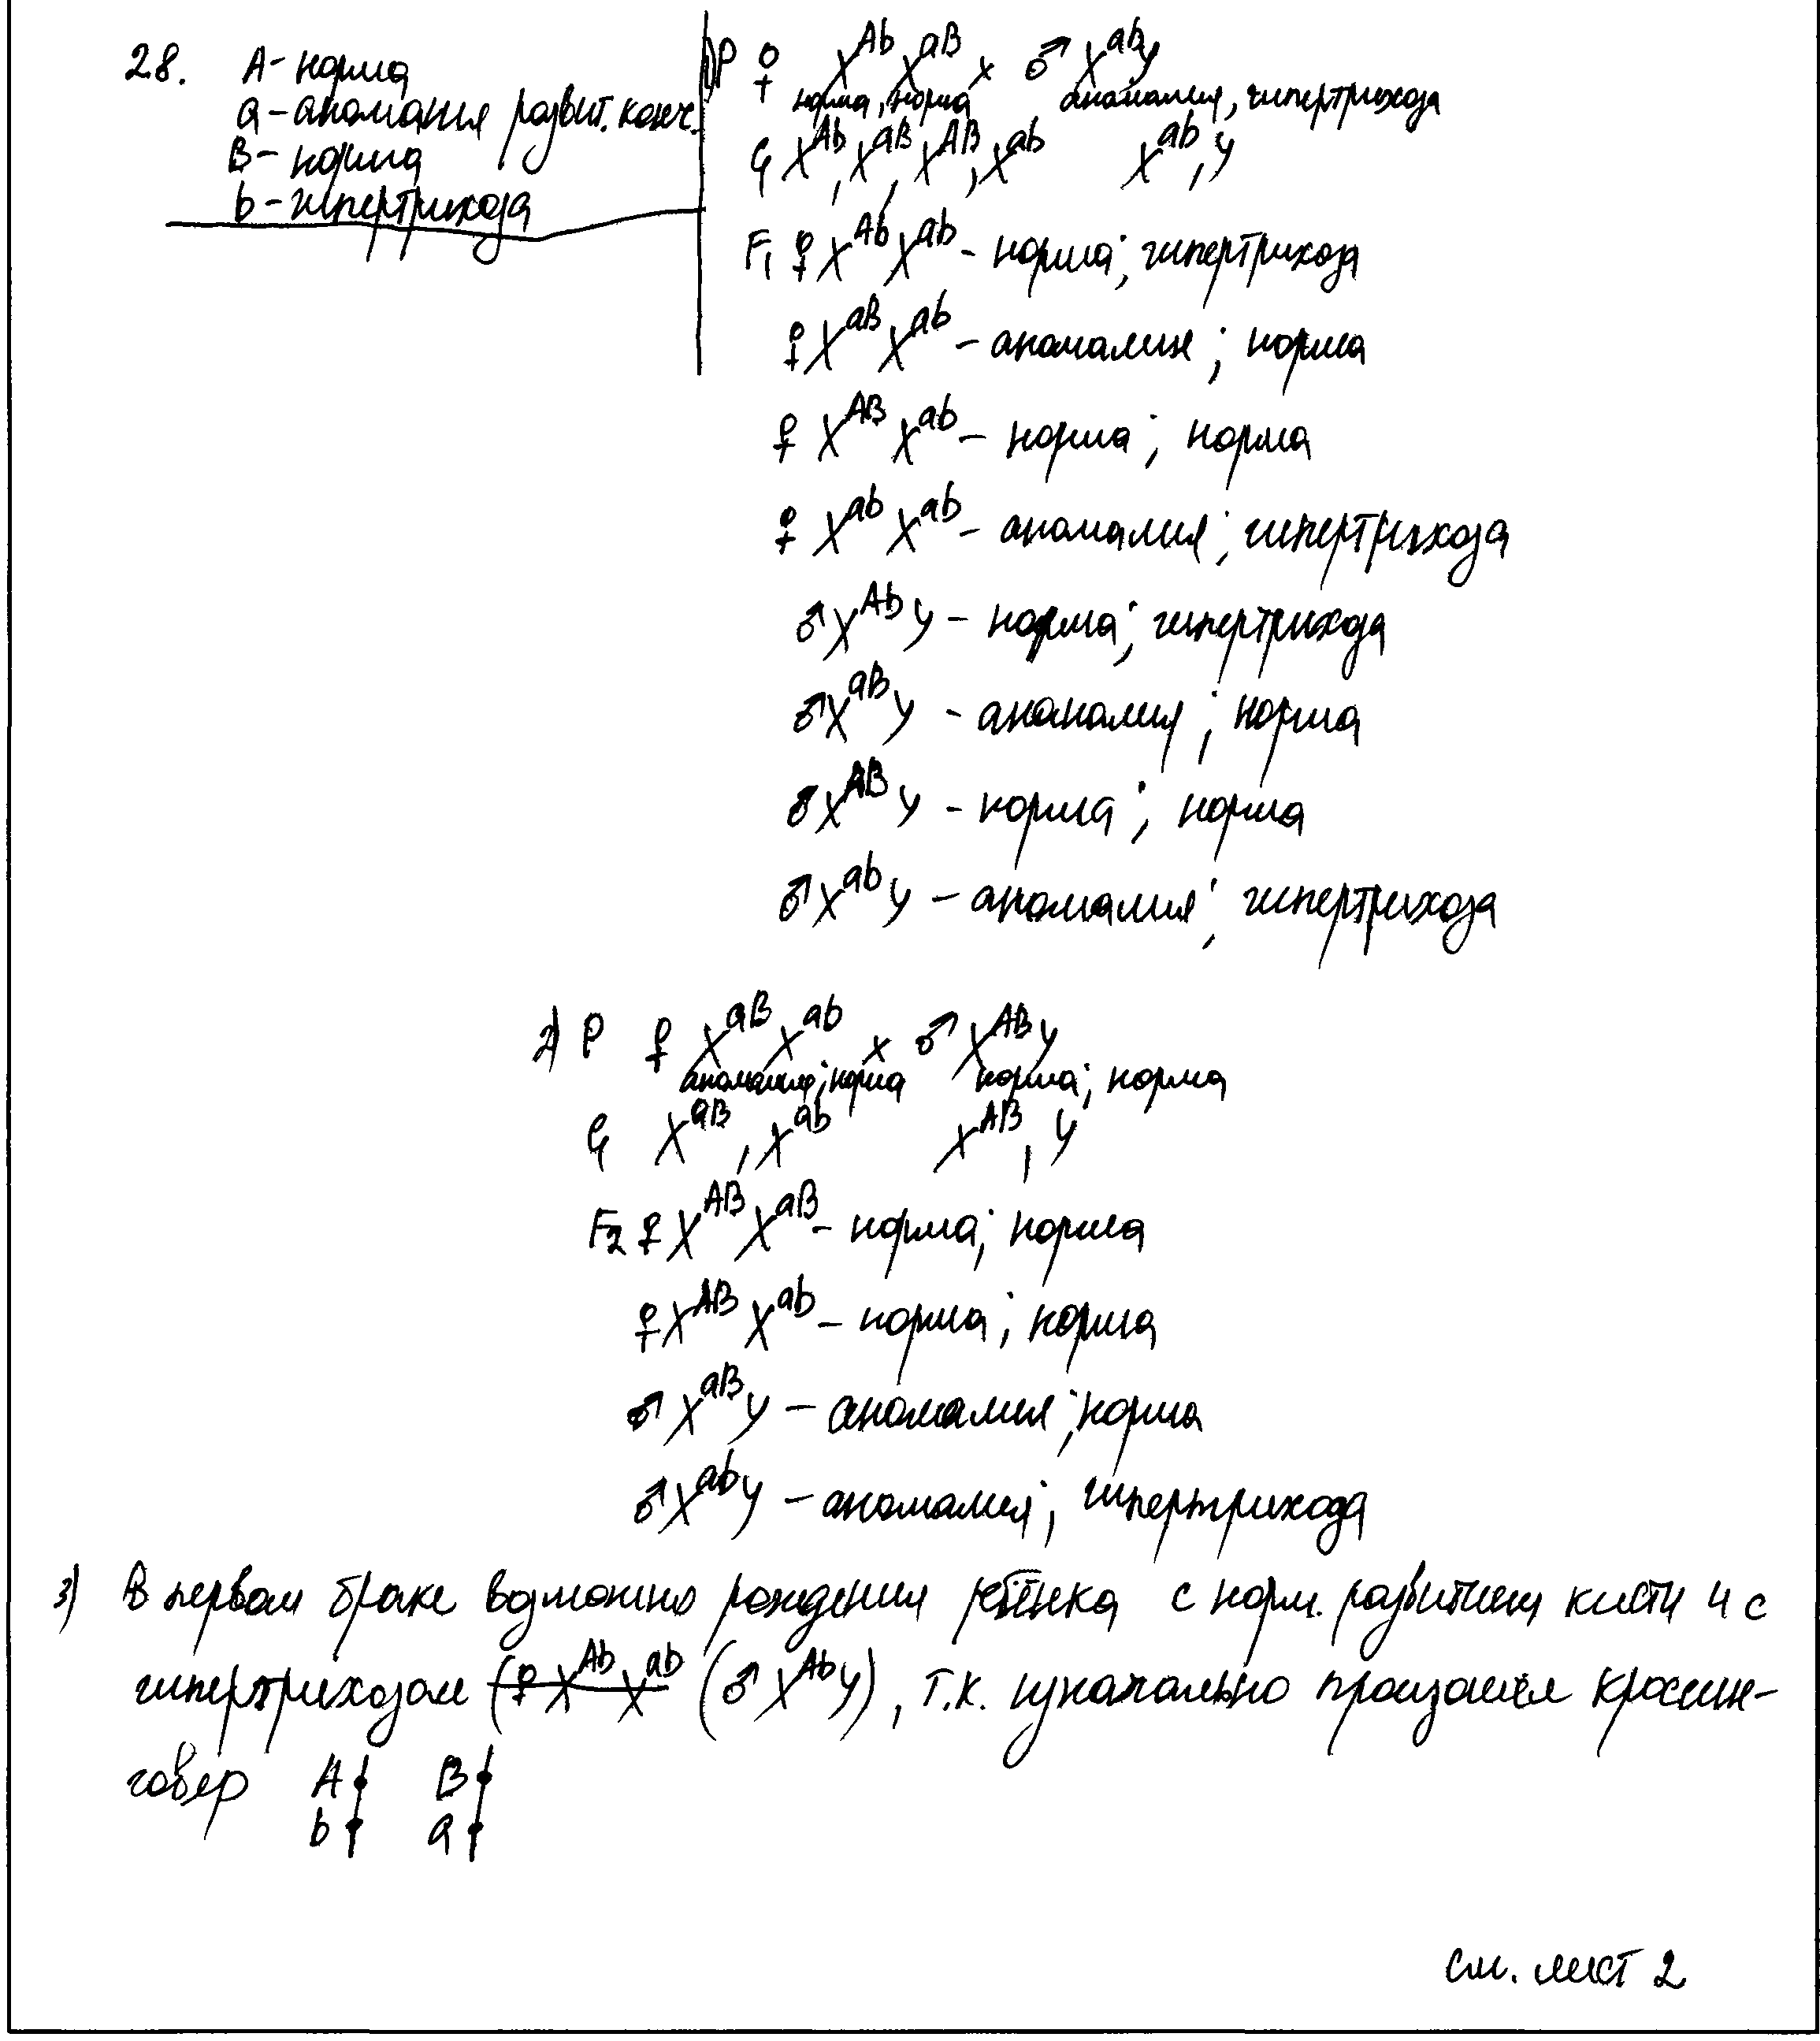 28. А- норма
а - аномалия развит. конеч.
В - норма
b - гипертрихоза
1) P ♀ X^Ab X^aB x ♂ X^ab y
норма, норма аномалия, гипертрихоза
G X^Ab, X^aB, X^AB, X^ab X^ab, y
F1 ♀ X^Ab X^ab - норма; гипертрихоза
♀ X^aB X^ab - аномалия; норма
♀ X^AB X^ab - норма; норма
♀ X^ab X^ab - аномалия; гипертрихоза
♂ X^Ab y - норма; гипертрихоза
♂ X^aB y - аномалия; норма
♂ X^AB y - норма; норма
♂ X^ab y - аномалия; гипертрихоза
2) P ♀ X^aB X^ab x ♂ X^AB y
аномалия; норма норма; норма
G X^aB, X^ab X^AB, y
F2 ♀ X^AB X^aB - норма; норма
♀ X^AB X^ab - норма; норма
♂ X^aB y - аномалия; норма
♂ X^ab y - аномалия; гипертрихоза
3) В первом браке возможно рождения ребёнка с норм. развитием кисти и с
гипертрихозом (♀ X^Ab X^ab (♂ X^Ab y), т.к. изначально произошёл кроссин-
говер A B
b a
см. лист 2